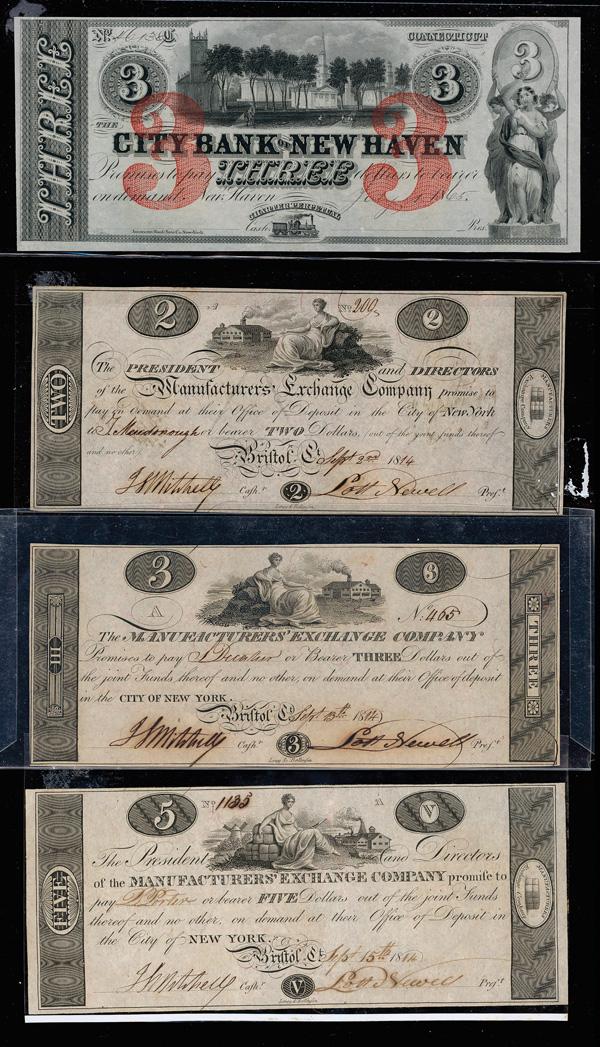 THREE
CONNECTICUT
3
3
3
THE
CITY BANK OF NEW HAVEN
3
3
Promises to pay THREE dollars to bearer
on demand. New Haven 1865.
CHARTER PERPETUAL
Cash.
Pres.
American Bank Note Co. New York.
2
No. 200
2
TWO
The PRESIDENT and DIRECTORS
of the Manufacturers' Exchange Company promise to
pay on demand at their Office of Deposit in the City of New York
to or bearer TWO Dollars, (out of the joint funds thereof
and no other.)
Bristol Ct. Sept. 2nd 1814
J S Mitchell Cash.r 2 Lott Newell Pres.t
3
A
3
III
No. 465
THREE
The MANUFACTURERS' EXCHANGE COMPANY
Promises to pay or Bearer THREE Dollars out of
the joint Funds thereof and no other, on demand at their Office of deposit
in the CITY OF NEW YORK.
Bristol Ct. Sept. 13th 1814
J S Mitchell Cash.r 3 Lott Newell Pres.t
5
No. 1135
A
V
FIVE
The President and Directors
of the MANUFACTURERS' EXCHANGE COMPANY promise to
pay or bearer FIVE Dollars out of the joint Funds
thereof and no other, on demand at their Office of Deposit in
the City of NEW YORK.
Bristol Ct. Sept. 15th 1814
J S Mitchell Cash.r V Lott Newell Pres.t